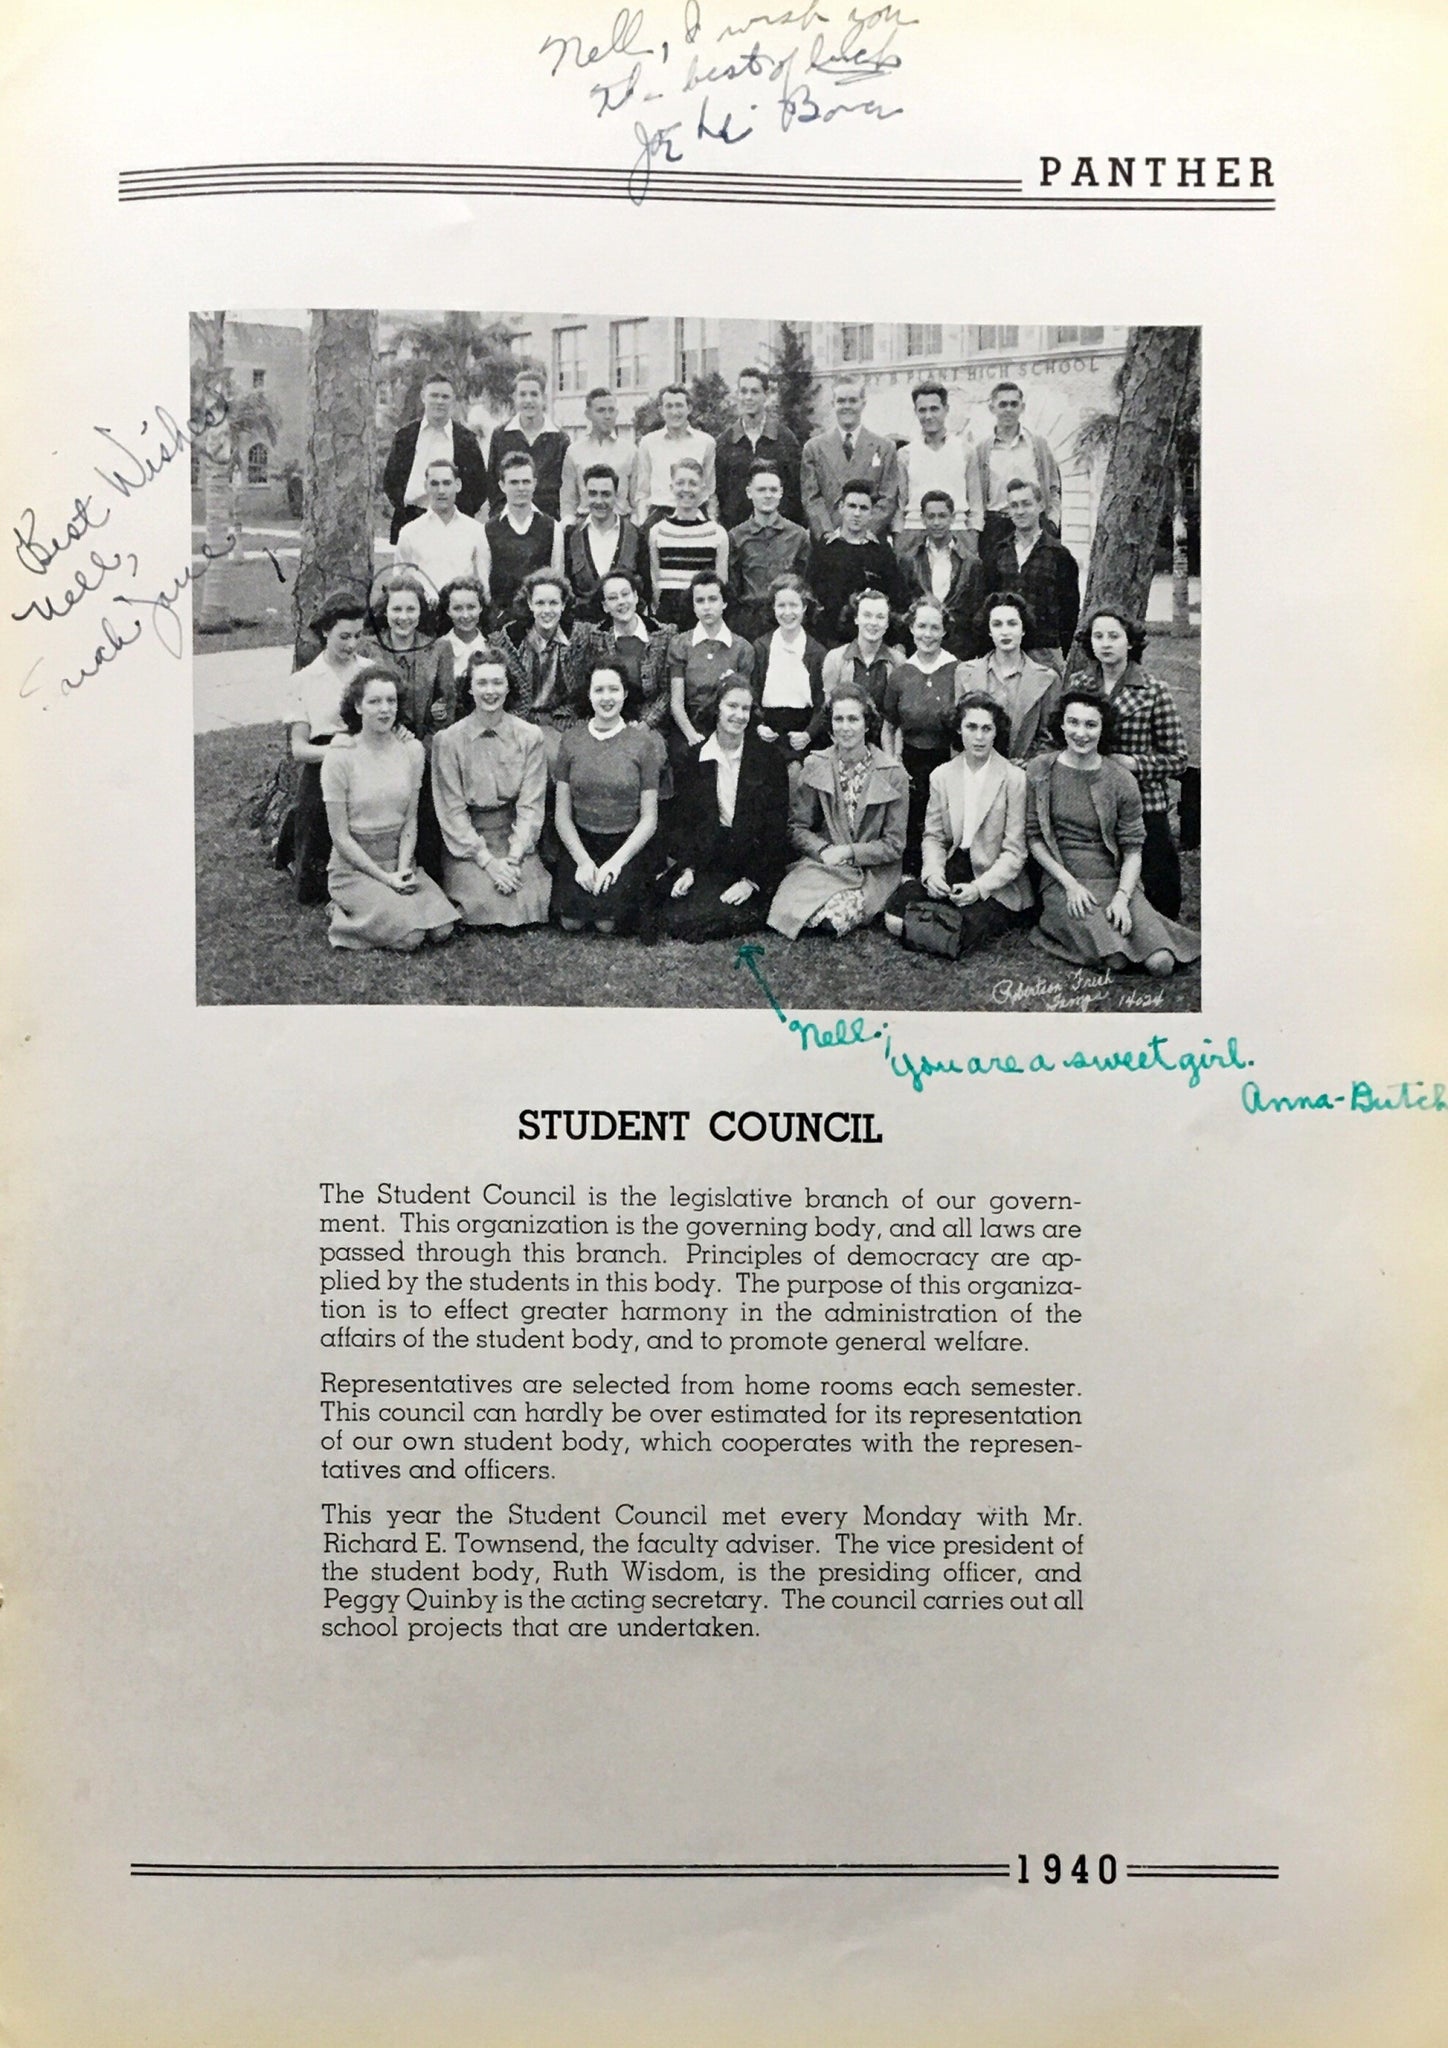 Nell, I wish you
The best of luck
Joe
PANTHER
Best Wishes
Nell,
RY B PLANT HIGH SCHOOL
Robertson Fresh
Tampa 14024
Nell;
you are a sweet girl.
Anna-Butch
STUDENT COUNCIL
The Student Council is the legislative branch of our govern-
ment. This organization is the governing body, and all laws are
passed through this branch. Principles of democracy are ap-
plied by the students in this body. The purpose of this organiza-
tion is to effect greater harmony in the administration of the
affairs of the student body, and to promote general welfare.
Representatives are selected from home rooms each semester.
This council can hardly be over estimated for its representation
of our own student body, which cooperates with the represen-
tatives and officers.
This year the Student Council met every Monday with Mr.
Richard E. Townsend, the faculty adviser. The vice president of
the student body, Ruth Wisdom, is the presiding officer, and
Peggy Quinby is the acting secretary. The council carries out all
school projects that are undertaken.
1940